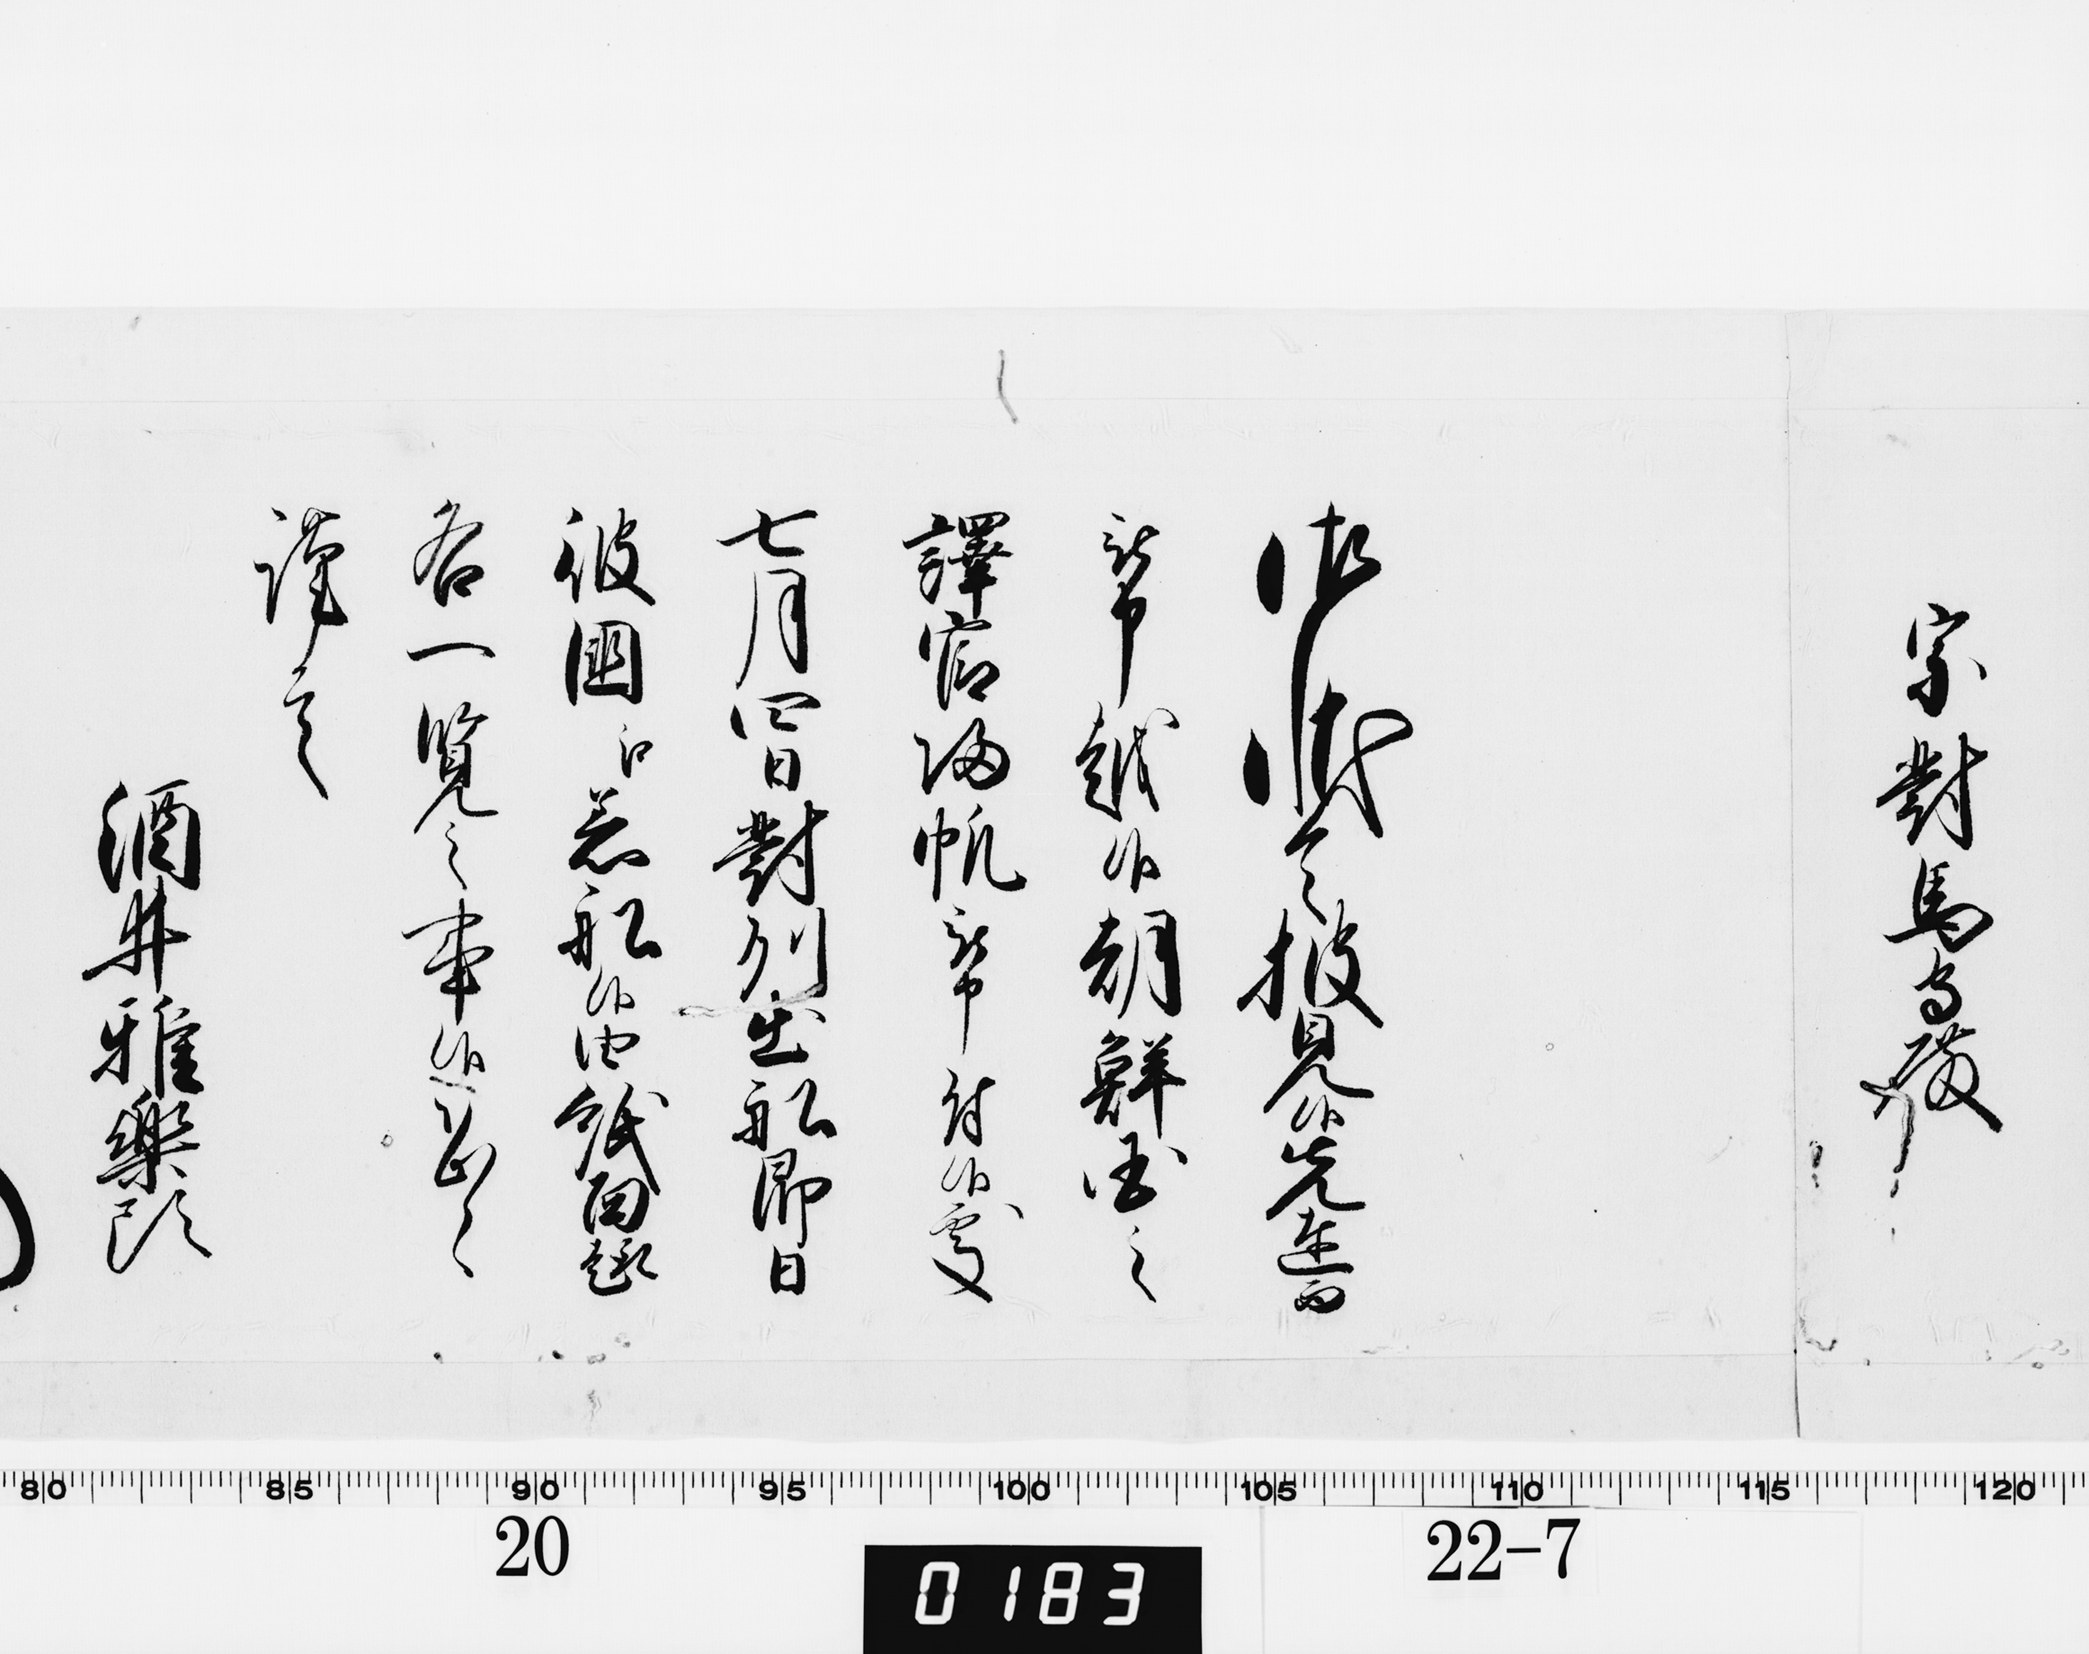 宗對馬守殿
御状令披見候先達而
被申越候朝鮮国之
譯官帰帆被申付候處
七月四日對州出船即日
彼國江着船候由紙面趣
各一覧之事候恐々
謹言
酒井雅樂頭
80 85 90 95 100 105 110 115 120
20
22-7
0183